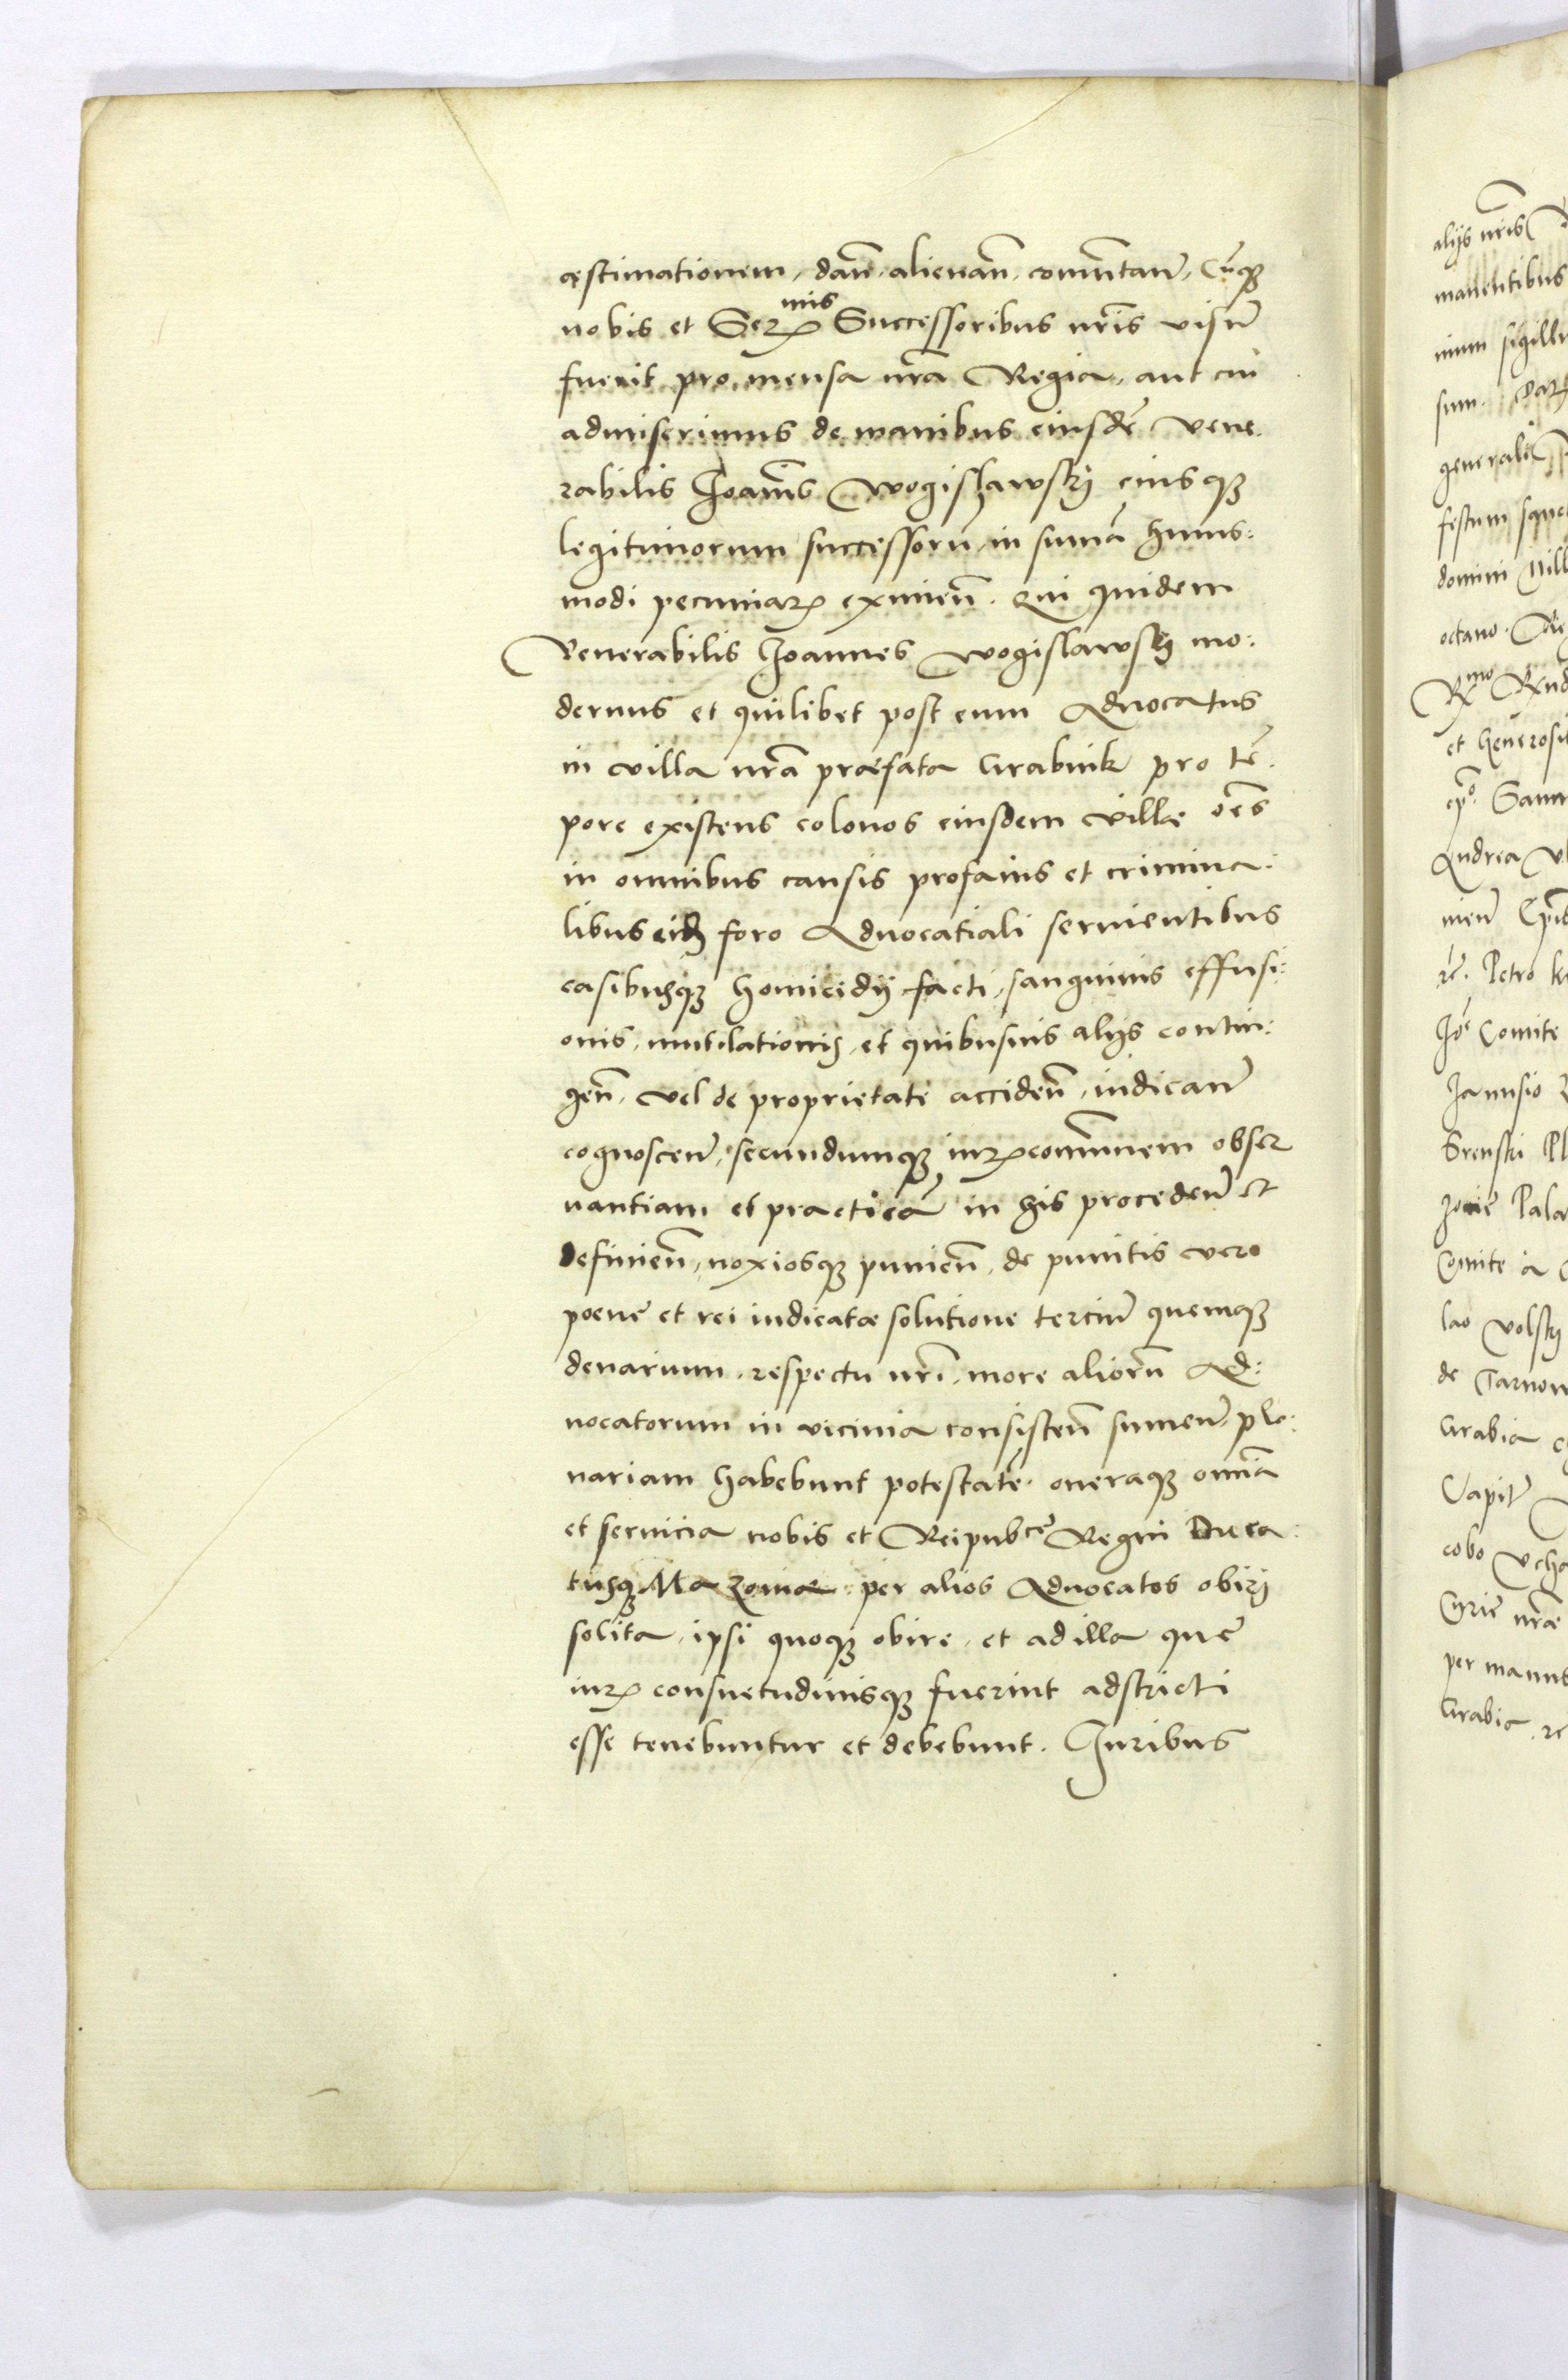 æstimationem, dan̄. alienan̄. com̄utan̄, Cū́q3
nobis et Serꝫmis Successoribus nr̄is visū
fuerit pro mensa nr̄a Regia, aut cui
admiserimus de manibus eiusdē Vene.
rabilis Joan̄is Wogislawskÿ eiusq3
legitimorum successorū, in sum̄a huius:
modi pecuniaꝝ eximen̄. Qui quidem
Venerabilis Joannes Wogislawskÿ mo:
dernus et quilibet post eum Aduocatus
in villa nr̄a præfata Grabnik pro tē.
pore existens colonos eiusdem villæ oēs
in omnibus causis profanis et crimina:
libus eid3 foro Aduocatiali seruientibus
casibusq3 homicidÿ facti, sanguinis effusi:
onis, mutilationis, et quibusuis alÿs contin:
gen̄. vel de proprietate acciden̄. iudican̄
cognoscen̄, secundumq3 iurꝭ communem obser
uantiam et practicā in his proceden̄ et
definien̄, noxiosq3 punien̄. de punitis vero
poenę et rei iudicatæ solutione terciū quemq3
denarium, respectu nr̄i, more aliorū Ad:
uocatorum in vicinia consisten̄ sumen̄, ple:
nariam habebunt potestatē. oneraq3 omīa
et seruicia nobis et Reipubcę Regni Duca:
tusq3 Mazouiæ per alios Aduocatos obiri
solita, ipsi quoq3 obire, et ad illa quę
iurꝭ consuetudinisq3 fuerint adstricti
esse tenebuntur et debebunt. Juribus
alÿs nr̄is
manentibus
nium sigill
sum.
generali
festum
domini Mill
octauo.
et Generosi
ep̄o.
Andrea
nien̄
rē. Petro
Jōē Comite
Janusio
Srenski
Pala
Comite a
lao Volskÿ
de Tarnow
Grabia
Capit̄
cobo Vcha
Curię nr̄æ
per manus
Grabia. re